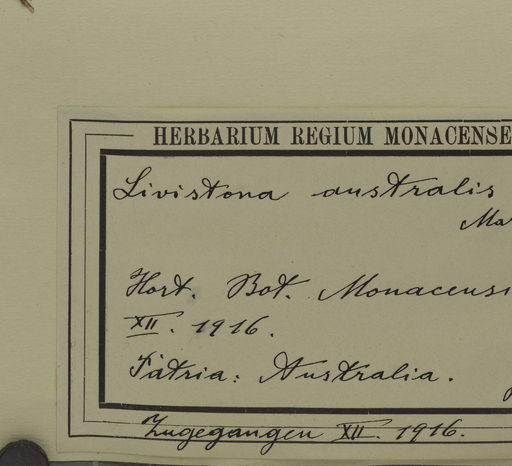 HERBARIUM REGIUM MONACENSE
Livistona australis
Mar
Hort. Bot. Monacensi
XII. 1916.
Patria: Australia.
Zugegangen XII. 1916.